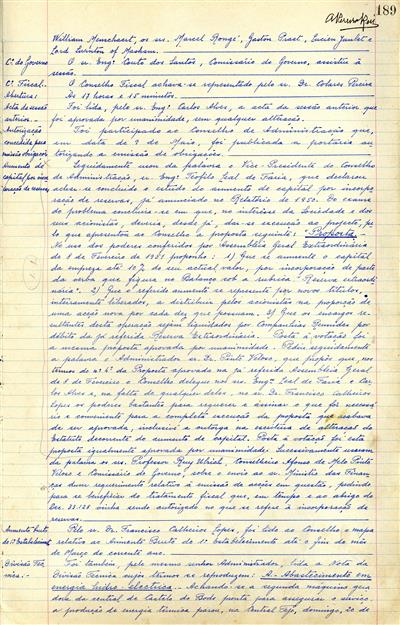 189
William Meuschaert, os srs. Marcel Rongé, Gaston Praet, Lucien Jaulet e
Lord Swinton of Masham.
Cº. do Governo O sr. Engº. Couto dos Santos, Comissário do Governo, assistiu à
sessão.
Cº. Fiscal. O Conselho Fiscal achava-se representado pelo sr. Dr. Colares Pereira
Abertura: Às 17 horas e 15 minutos.
Acta da sessão anterior.- Foi lida, pelo sr. Engº. Carlos Alves, a acta da sessão anterior que
foi aprovada por unanimidade, sem qualquer alteração.
Autorização concedida para Foi participado ao Conselho de Administração que,
em data de 3 de Maio, foi publicada a portaria au-
torizando a emissão de obrigações.
Aumento de capital por Seguidamente usou da palavra o Vice-Presidente do Conselho
de Administração, sr. Engº. Teófilo Leal de Faria, que declarou
achar-se concluído o estudo do aumento de capital por incorpo-
ração de reservas, já anunciado no Relatório de 1950. Do exame
do problema concluira-se em que, no interesse da Sociedade e dos
seus accionistas, deveria, desde já, dar-se execução ao projecto, pe-
lo que apresentava ao Conselho a proposta seguinte: "Proposta
No uso dos poderes conferidos por Assembleia Geral Extraordinária
de 8 de Fevereiro de 1951 proponho: 1) Que se aumente o capital
da empresa até 10% do seu actual valor, por incorporação de parte
da verba que figura no Balanço sob a rubrica "Reserva extraordi-
nária". 2) Que o referido aumento se represente por novos títulos,
inteiramente liberados, a distribuir pelos accionistas na proporção de
uma acção nova por cada dez que possuam. 3) Que os encargos re-
sultantes desta operação sejam liquidados por Companhias Reunidas por
débito da já referida Reserva Extraordinária. Posta à votação foi
a mesma proposta aprovada por unanimidade. Pediu seguidamente
a palavra o Administrador sr. Dr. Pinto Veloso, que propôs que, nos
termos do nº. 4º. da Proposta aprovada na já referida Assembleia Geral
de 8 de Fevereiro o Conselho delegue nos srs. Engºs. Leal de Faria e Car-
los Alves e, na falta de qualquer deles, no sr. Dr. Francisco Calheiros
Lopes os poderes bastantes para requerer e assinar o que for necessá-
rio e conveniente para a completa execução da proposta que acabava
de ser aprovada, inclusivé a outorga na escritura de alteração do
Estatuto decorrente do aumento de capital. Posta à votação foi esta
proposta igualmente aprovada por unanimidade. Sucessivamente usaram
da palavra os srs. Professor Ruy Ulrich, Conselheiro Afonso de Melo, Pinto
Veloso e Comissário do Governo, sobre o envio ao sr. Ministro das Finan-
ças dum requerimento relativo à emissão de acções em questão, pedindo
para se beneficiar do tratamento fiscal que, em tempo e ao abrigo do
Dec. 33.128 vinha sendo autorizado no que se refere à incorporação de
reservas.
Aumento bruto do 1º. Estabelecimento Pelo sr. Dr. Francisco Calheiros Lopes, foi lido ao Conselho o mapa
relativo ao Aumento Bruto do 1º. Estabelecimento até o fim do mês
de Março do corrente ano.
Divisão Téc-
nica:- Foi também, pelo mesmo senhor Administrador, lida a Nota da
Divisão Técnica cujos termos se reproduzem: A - Abastecimento em
energia hidro-eléctrica - Achando-se a segunda máquina gera-
dora da central de Castelo do Bode pronta para assegurar o serviço
a produção de energia térmica parou, na Central Tejo, domingo, 20 de